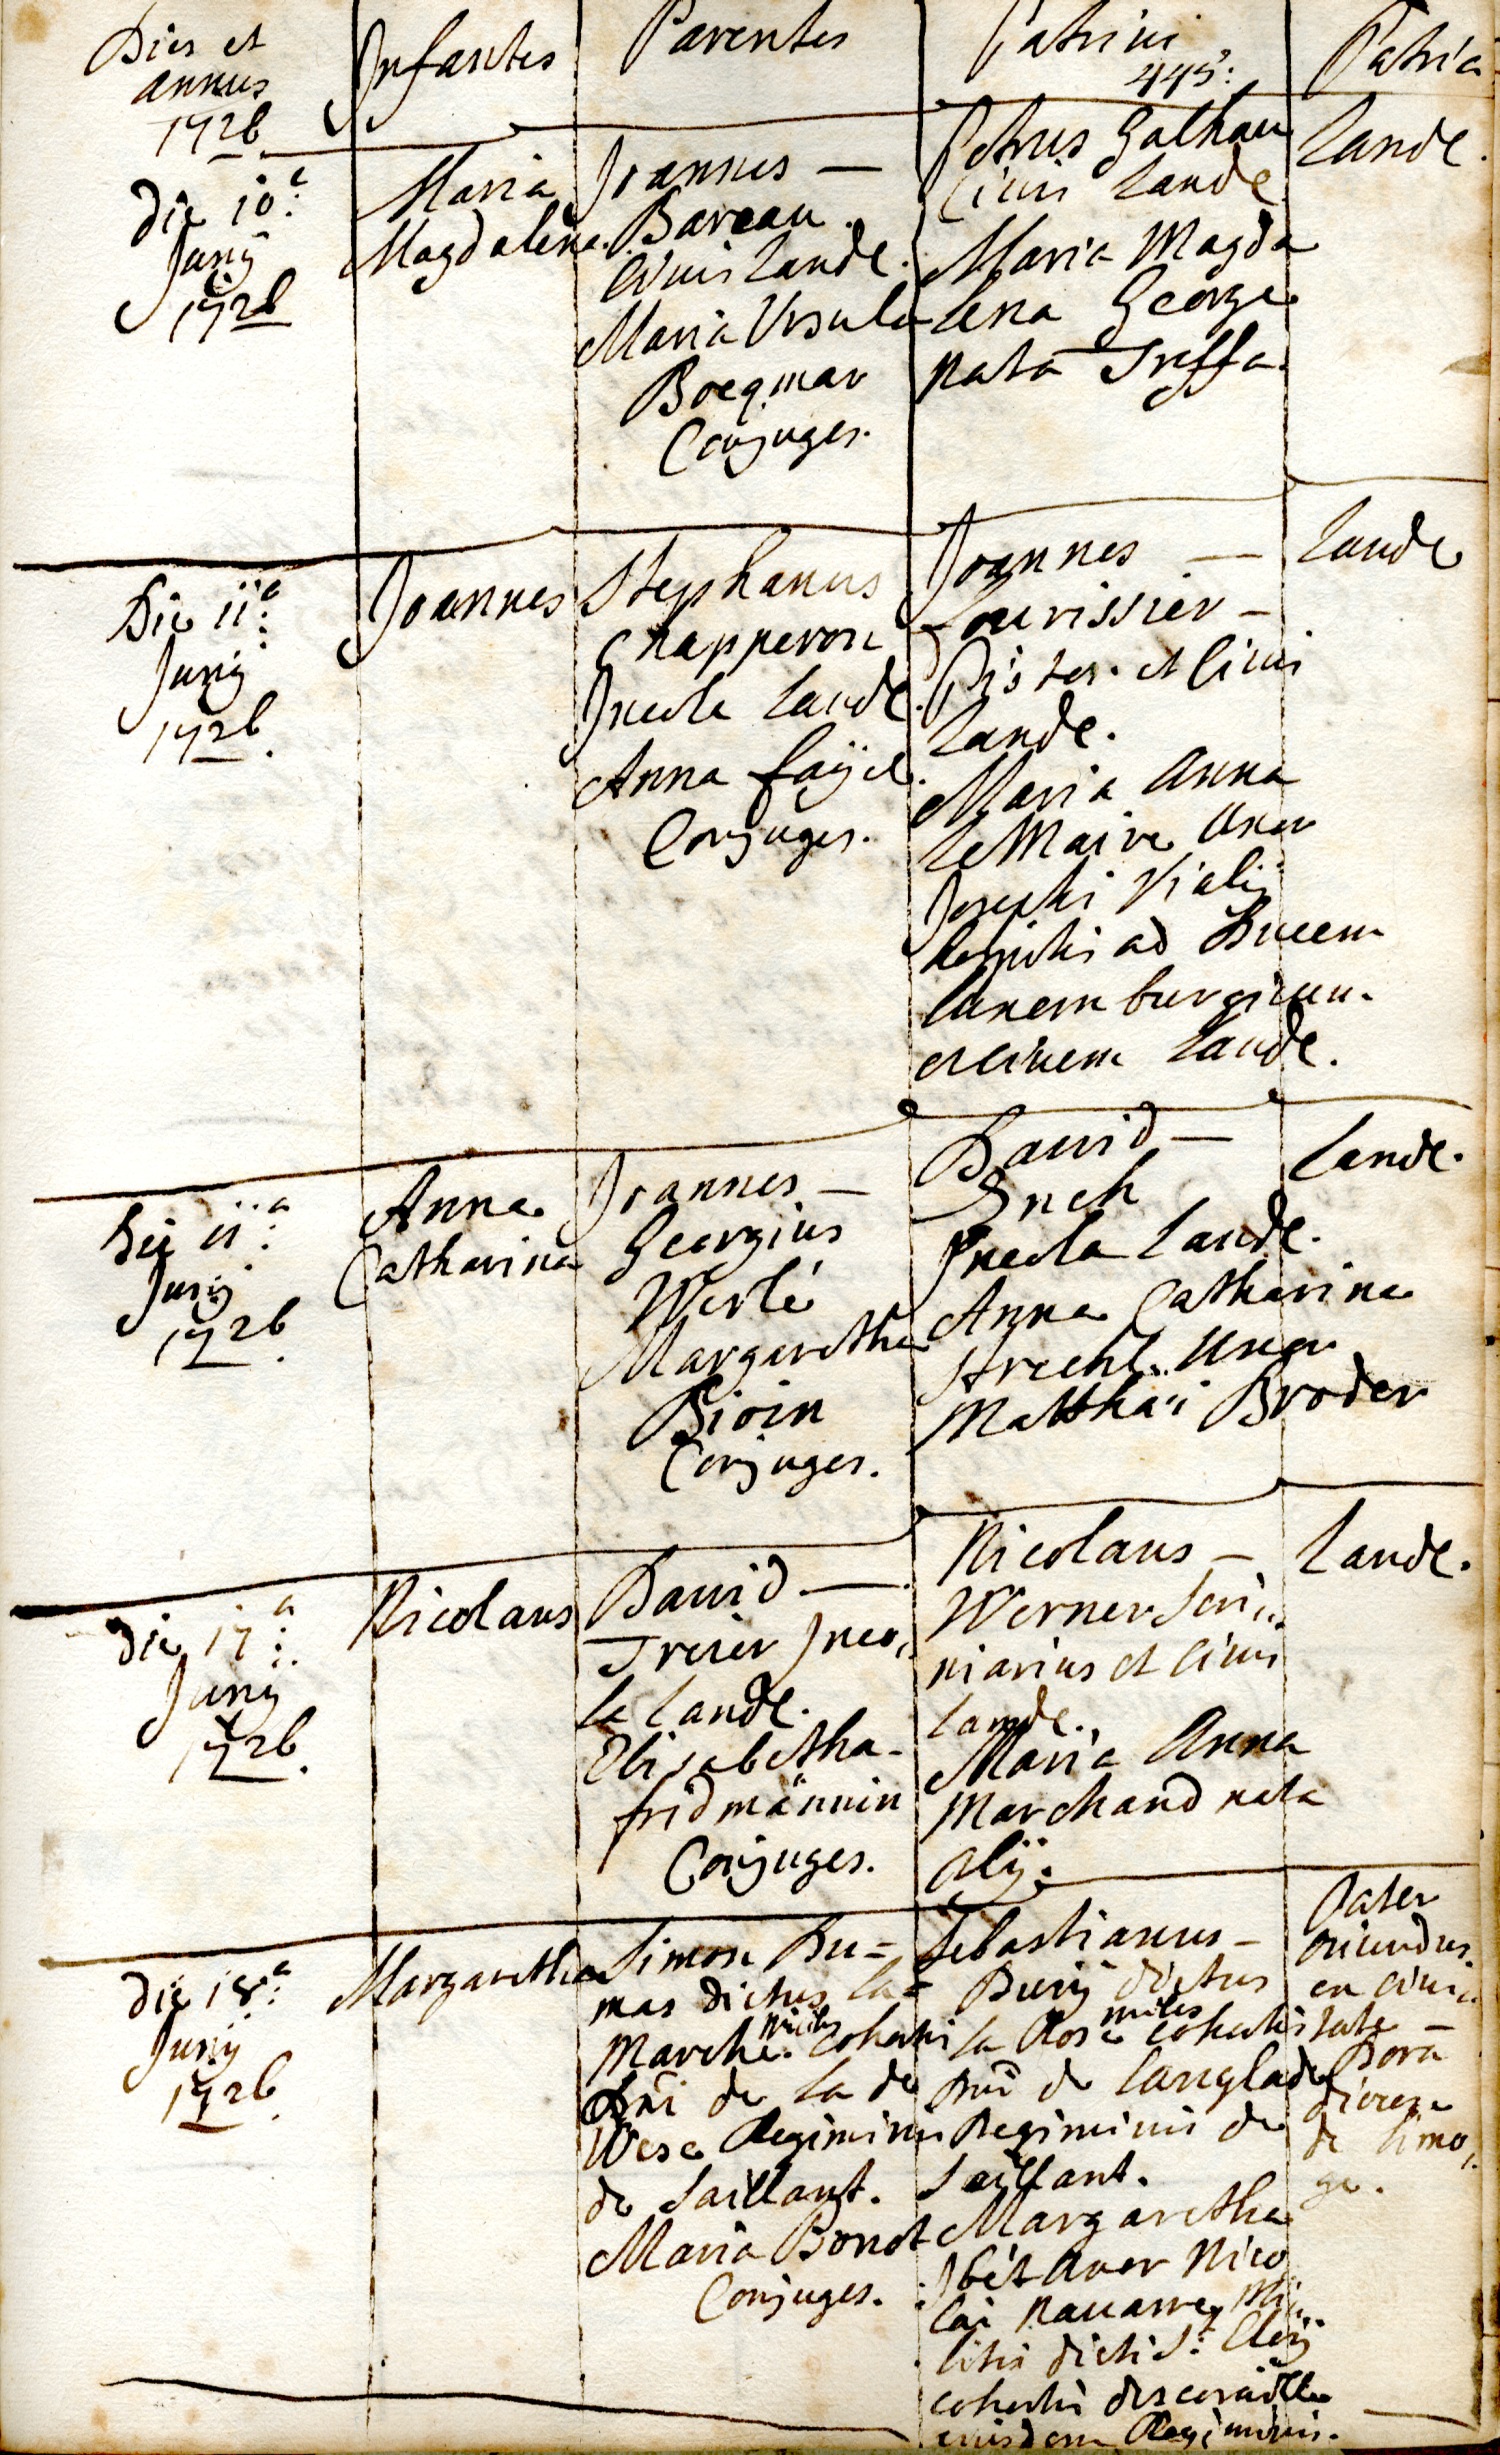 Dies et
annus
1726
Infantes
Parentes
Patrini
445:
Patria
die 10ª:
Junÿ
1726
Maria
Magdalena.
Joannes —
Bareau
Civis Laude.
Maria Ursula
Boeqmar
Conjuges.
Petrus Galhau
Civis Laude
Maria Magda
lena George
nata Treffa.
Laude.
Die 11ª:
Junÿ
1726.
Joannes
Stephanus
Chapperon
Incola Laude.
Anna faÿel.
Conjuges.
Joannes —
Fourissier —
Pistor et Civis
Laude.
Maria Anna
le Maire Uxor
Josephi Vialÿ
hospitis ad Ducem
Luxemburgicum
et Civem Laude.
Laude
Die 11ª:
Junÿ
1726.
Anna
Catharina
Joannes —
Georgius
Werlé
Margaretha
Bioin
Conjuges.
David —
Incola Laude.
Anna Catharina
Strecht Uxor
Matthäi Broder
Laude.
die 17ª:
Junÿ
1726.
Nicolaus
David —
Treier Inco,,
la Laude.
Elisabetha
fridmännin
Conjuges.
Nicolaus —
Werner Scri,,
niarius et Civis
Laude.
Maria Anna
Marchand nata
Alÿ.
Laude.
die 18ª:
Junÿ
1726.
Margaretha
Simon Du=
mas dictus la=
Marche. miles Cohortis
Dni de la de
Wese Regiminis
de Saillant.
Maria Bonot
Conjuges.
Sebastianus —
Burÿ dictus
la Rose miles cohortis
Dni de Langlade
Regiminis de
Saillant.
Margaretha
Uxor Nico
lai Nauarre, Mi,,
litis dicti St: Eloÿ
cohortis
eiusdem Regiminis.
Pater
oriundus
ex Ciui,,
tate —
Dora
diocese
de Limo,,
ge.